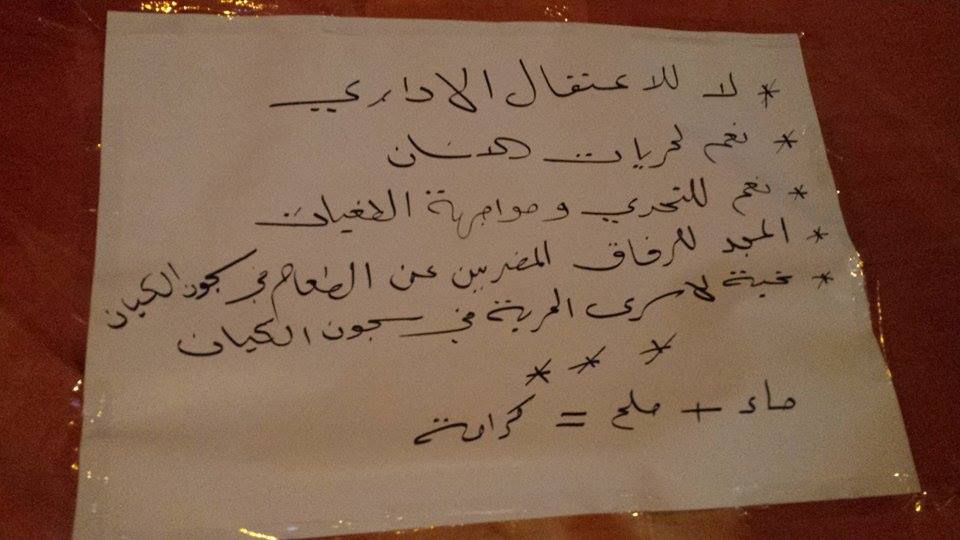 * لا للاعتقال الاداري
* نعم لحريات الانسان
* نعم للتحدي ومواجهة الطغيان
* المجد للرفاق المضربين عن الطعام في سجون الكيان
* تحية لاسرى الحرية في سجون الكيان
* * *
ماء + ملح = كرامة